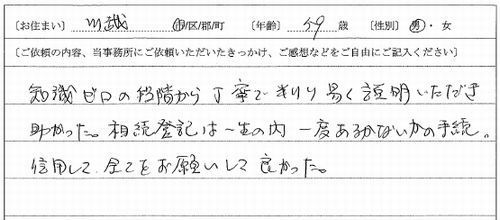 [お住まい] 川越 市/区/郡/町 [年齢] 59 歳 [性別] 男・女
[ご依頼の内容、当事務所にご依頼いただいたきっかけ、ご感想などをご自由にご記入ください]
知識ゼロの段階から丁寧で判り易く説明いただき
助かった。相続登記は一生の内一度あるかないかの手続。
信用して全てをお願いして良かった。